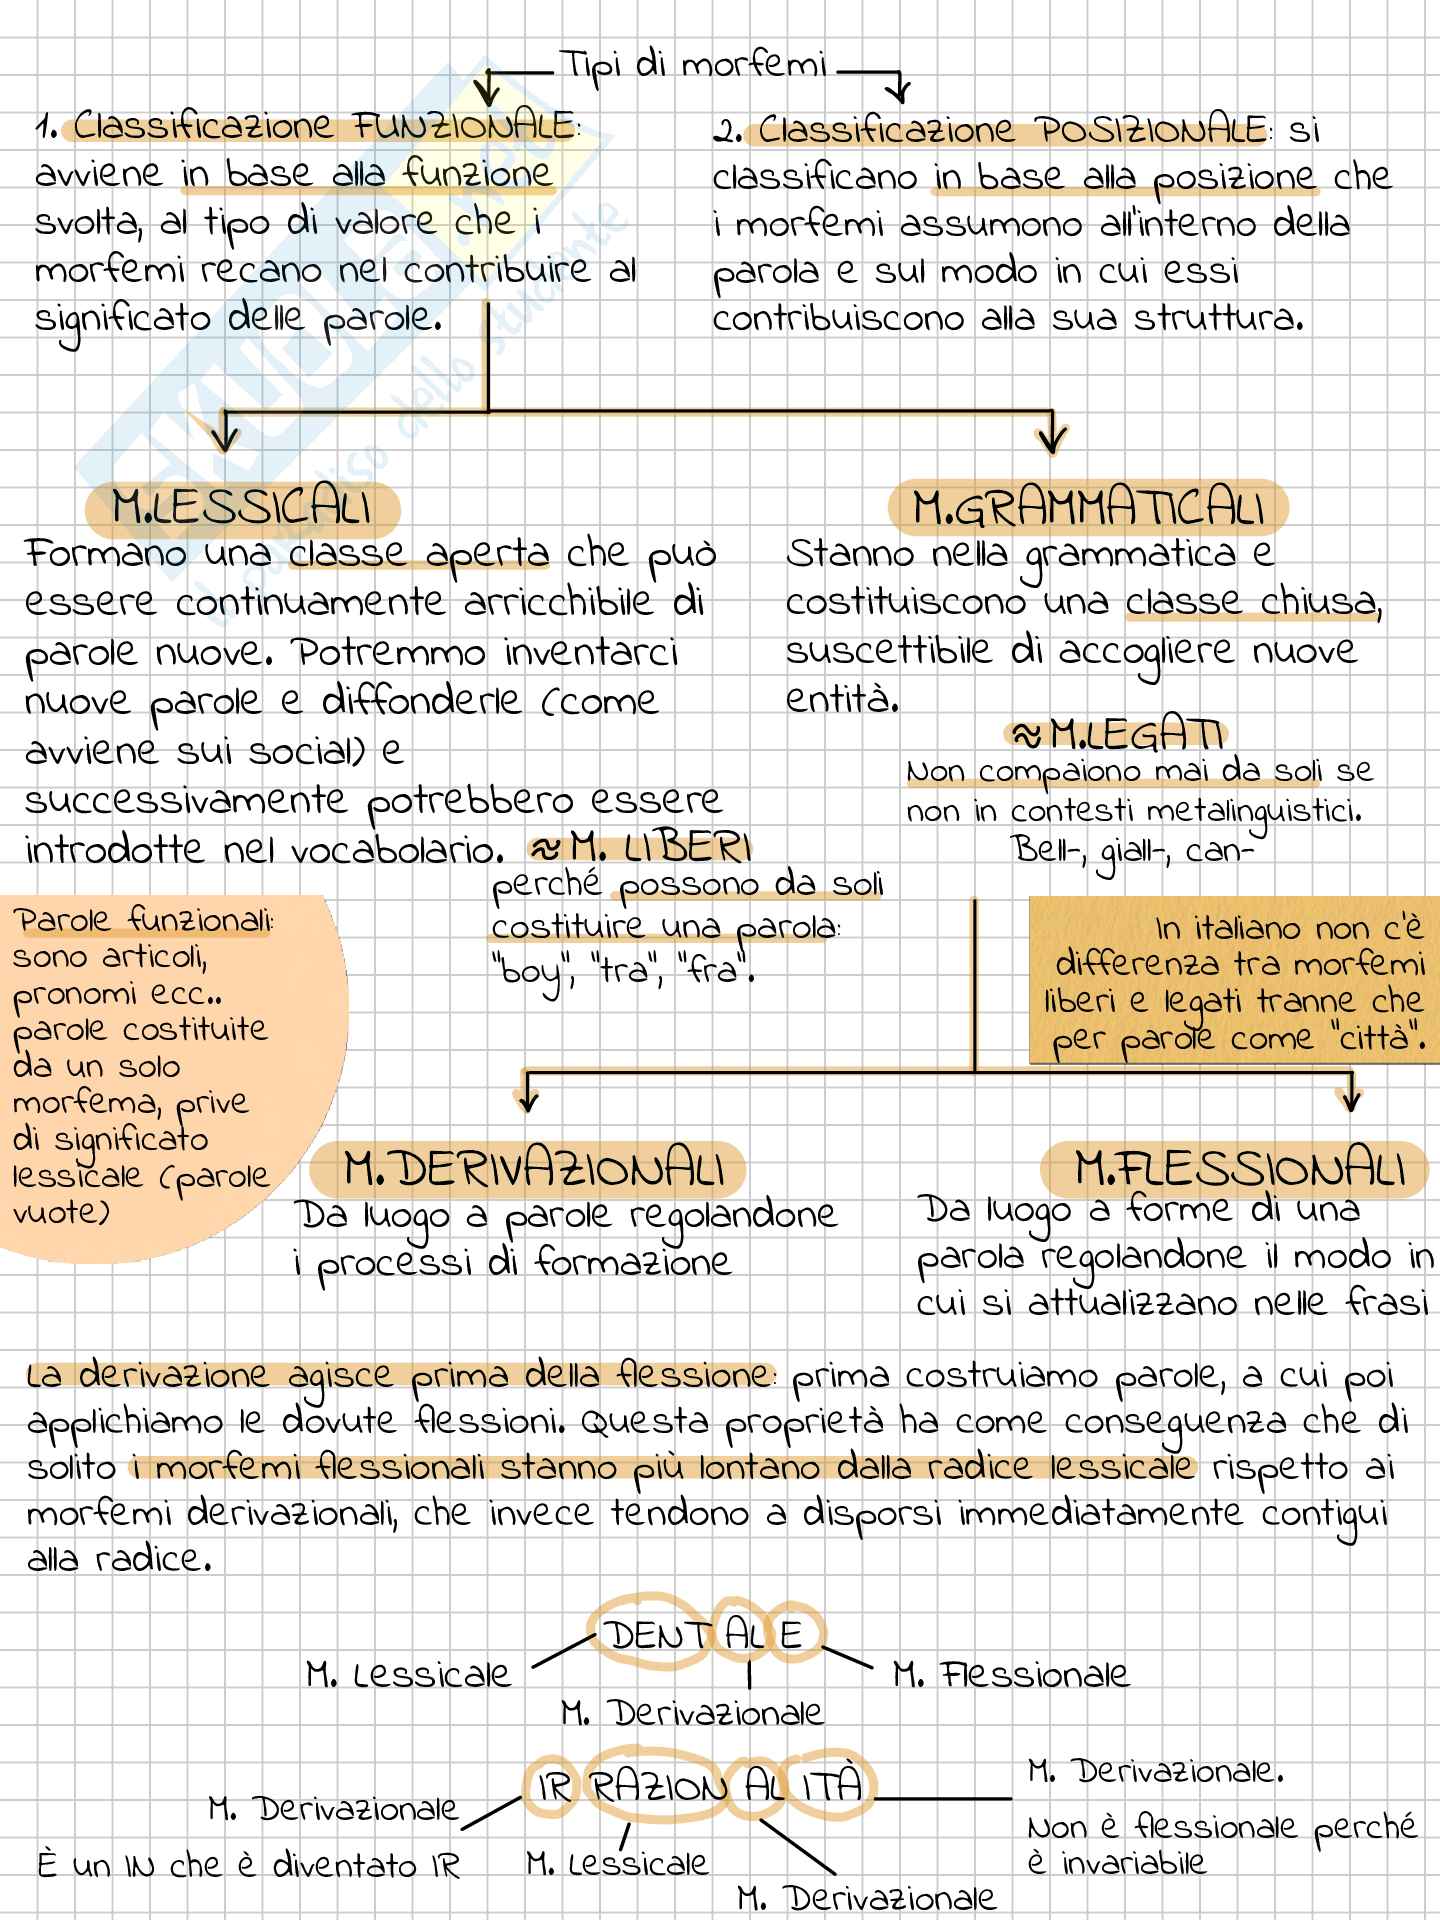 Tipi di morfemi
1. Classificazione FUNZIONALE:
avviene in base alla funzione
svolta, al tipo di valore che i
morfemi recano nel contribuire al
significato delle parole.
2. Classificazione POSIZIONALE: si
classificano in base alla posizione che
i morfemi assumono all'interno della
parola e sul modo in cui essi
contribuiscono alla sua struttura.
M.LESSICALI
Formano una classe aperta che può
essere continuamente arricchibile di
parole nuove. Potremmo inventarci
nuove parole e diffonderle (come
avviene sui social) e
successivamente potrebbero essere
introdotte nel vocabolario.
≈ M. LIBERI
perché possono da soli
costituire una parola:
"boy", "tra", "fra".
M.GRAMMATICALI
Stanno nella grammatica e
costituiscono una classe chiusa,
suscettibile di accogliere nuove
entità.
≈ M.LEGATI
Non compaiono mai da soli se
non in contesti metalinguistici.
Bell-, giall-, can-
Parole funzionali:
sono articoli,
pronomi ecc..
parole costituite
da un solo
morfema, prive
di significato
lessicale (parole
vuote)
In italiano non c'è
differenza tra morfemi
liberi e legati tranne che
per parole come "città".
M. DERIVAZIONALI
Da luogo a parole regolandone
i processi di formazione
M.FLESSIONALI
Da luogo a forme di una
parola regolandone il modo in
cui si attualizzano nelle frasi
La derivazione agisce prima della flessione: prima costruiamo parole, a cui poi
applichiamo le dovute flessioni. Questa proprietà ha come conseguenza che di
solito i morfemi flessionali stanno più lontano dalla radice lessicale rispetto ai
morfemi derivazionali, che invece tendono a disporsi immediatamente contigui
alla radice.
DENT AL E
M. Lessicale
M. Derivazionale
M. Flessionale
IR RAZION AL ITÀ
M. Derivazionale
È un IN che è diventato IR
M. Lessicale
M. Derivazionale
M. Derivazionale.
Non è flessionale perché
è invariabile
SKUOLA.net
il paradiso dello studente